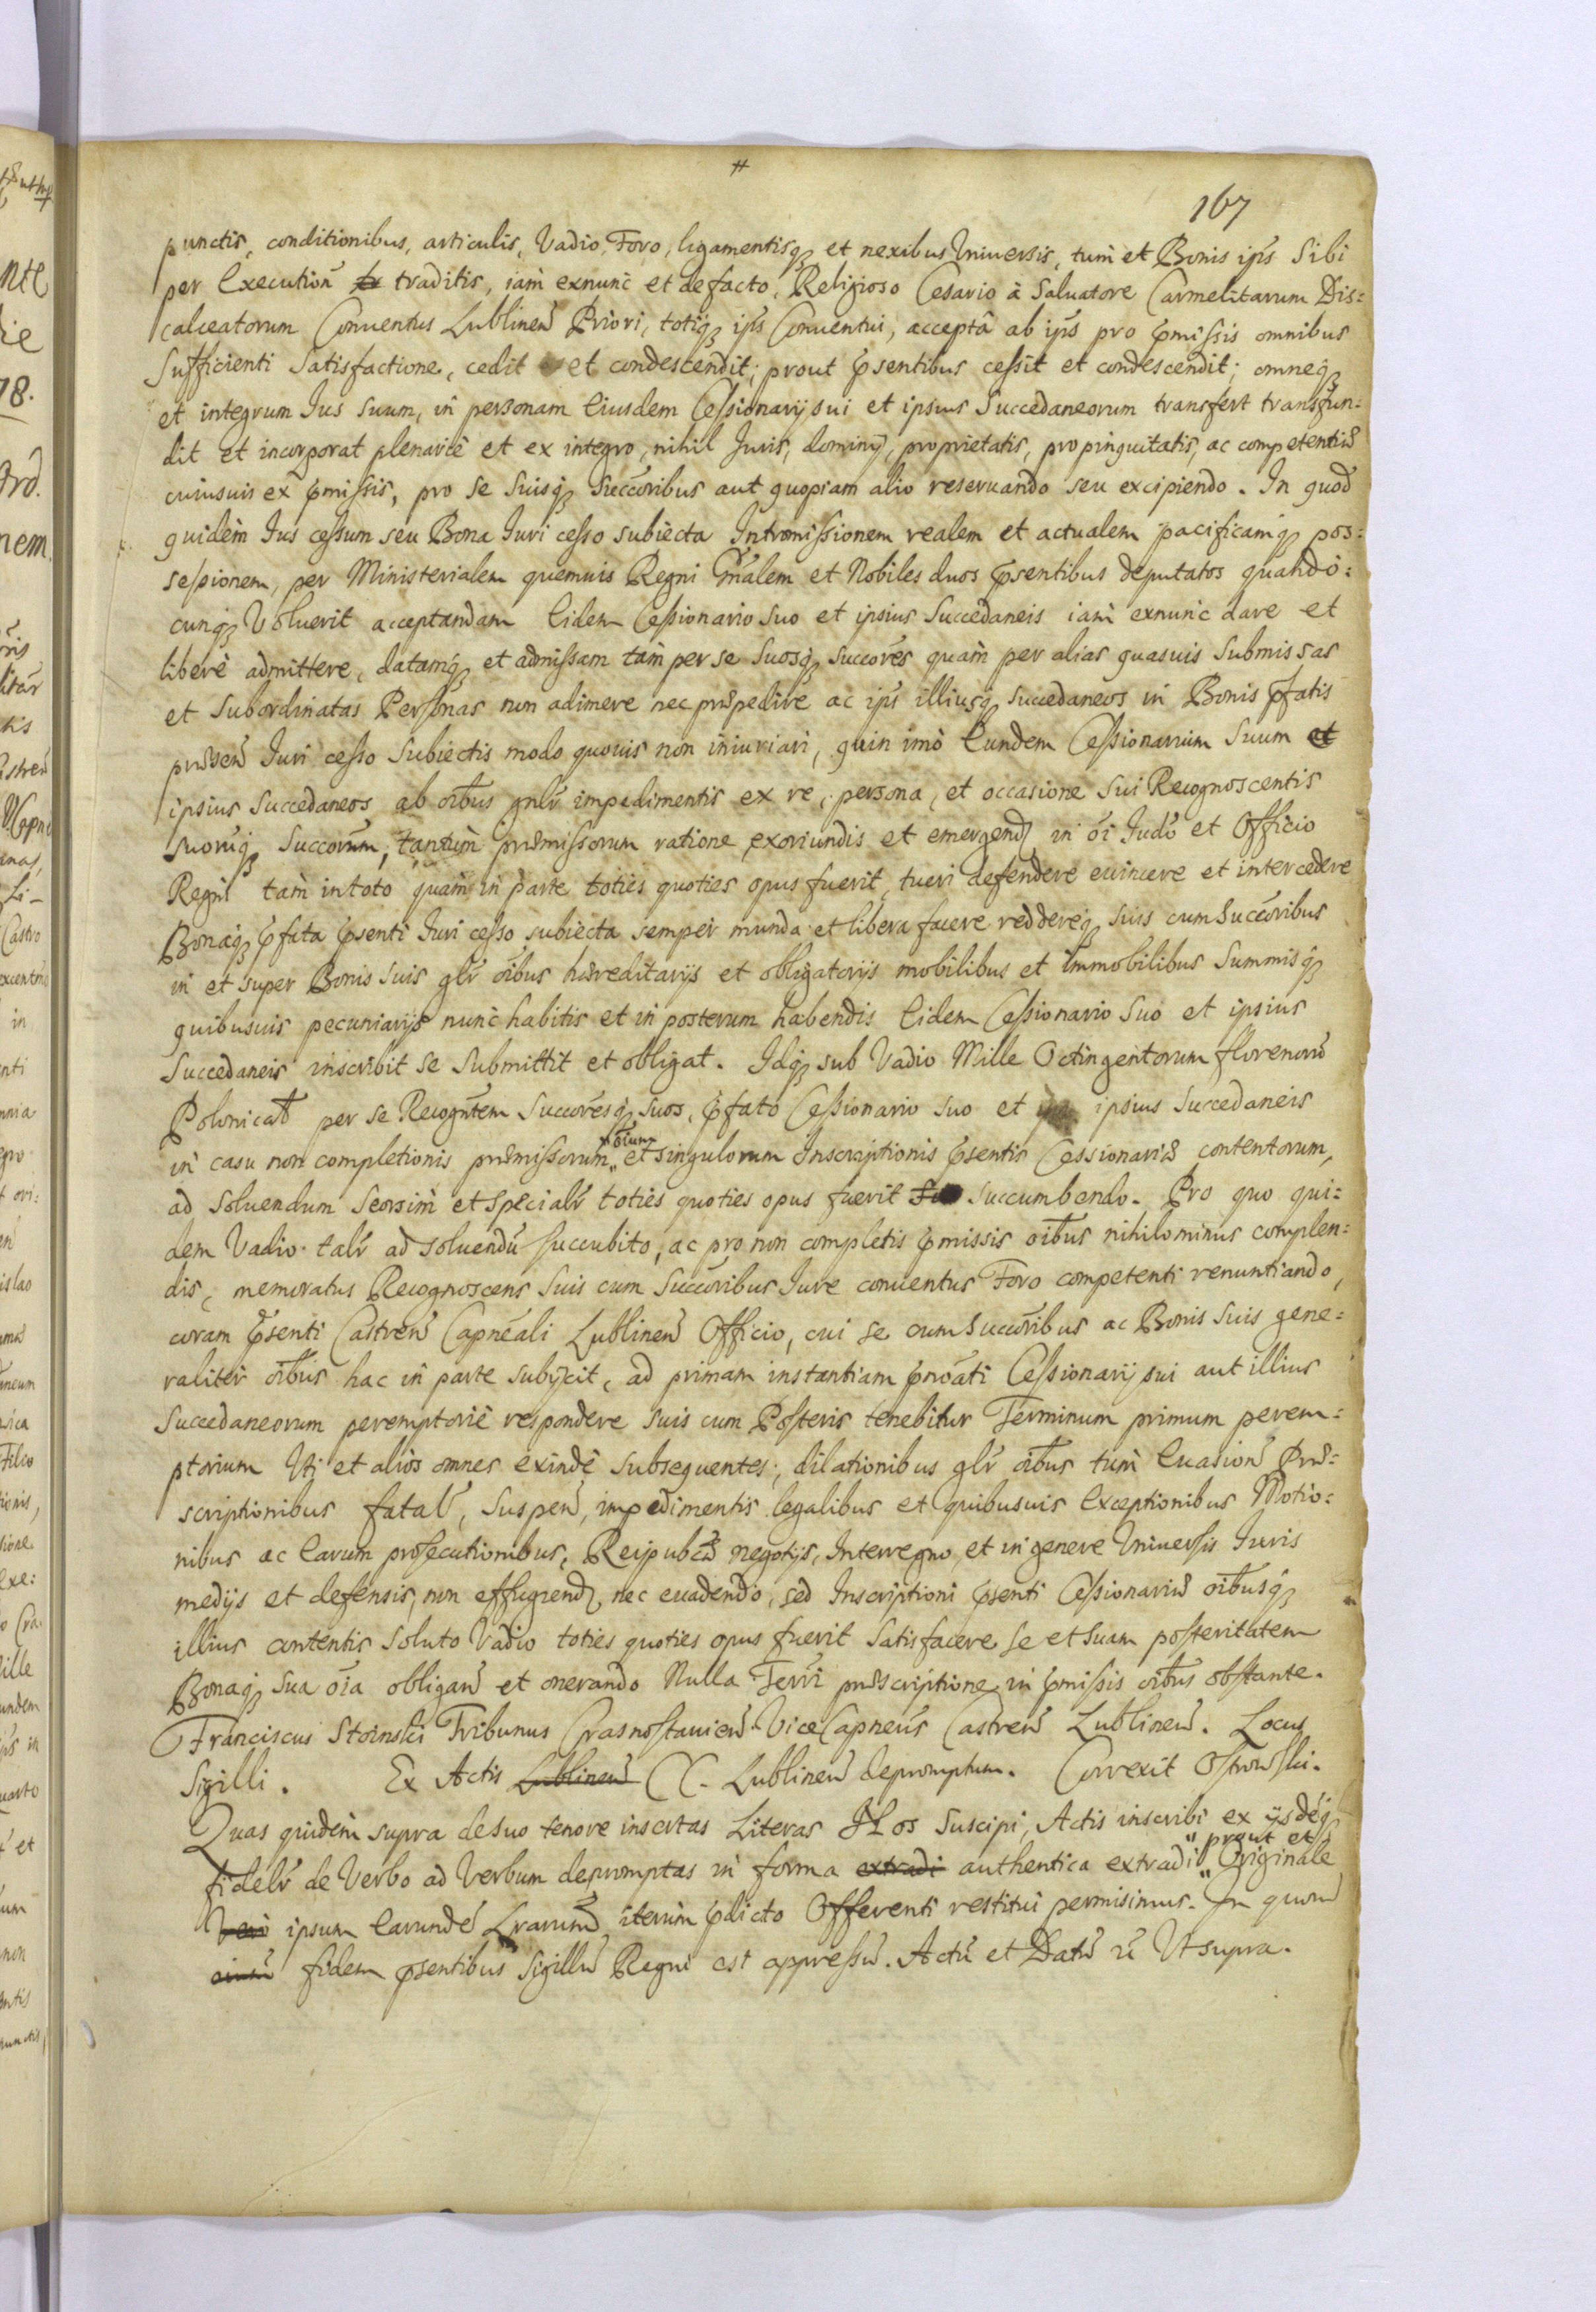 #
167
punctis, conditionibus, articulis, Vadio, Foro, ligamentisqꝫ et nexibus Vniuersis, tum et Bonis ip̃s Sibi
per Execution̄ traditis, iam exnunc et defacto, Religioso Cesario à Saluatore Carmelitarum Dis:
calceatorum Conuentus Lublinen̄ Priori, totiqꝫ ip̃s Conuentui, acceptâ ab ip̃s pro p̃missis omnibus
Sufficienti Satisfactione, cedit et condescendit; prout p̃sentibus cessit et condescendit; omneqꝫ
et integrum Ius suum, in personam Eiusdem Cessionarij sui et ipsius Succedaneorum transfert transfun:
dit et incorporat plenariè et ex integro, nihil Juris, dominij, proprietatis, propinquitatis, ac competentiæ
cuiusuis ex p̃missis, pro se suisqꝫ Succōribus aut quopiam alio reseruando seu excipiendo. In quod
quidem Ius cessum seu Bona Iuri cesso subiecta Intromissionem realem et actualem pacificamqꝫ pos:
sessionem, per Ministerialem quemuis Regni Gn̄ralem et Nobiles duos p̃sentibus deputatos quando:
cunqꝫ Voluerit acceptandam Eidem Cessionario suo et ipsius Succedaneis iam exnunc dare et
liberè admittere, datamqꝫ et admissam tam per se suosqꝫ succōres quàm per alias quasuis submissas
et Subordinatas Personas non adimere nec præpedire ac ip̃s illiusqꝫ succedaneos in Bonis p̃fatis
præsen̄ Iuri cesso subiectis modo quouis non iniuriari, quin imò Eundem Cessionarium Suum et
ipsius Succedaneos ab oībus gnl̄r impedimentis ex re, persona, et occasione sui Recognoscentis
suorūqꝫ Succorum, tantùm præmissorum ratione exoriundis et emergend, in oī Iudō et Officio
Regni tàm in toto quàm in parte toties quoties opus fuerit, tueri defendere euincere et intercedere
Bonaqꝫ p̃fata p̃senti Iuri cesso subiecta semper munda et libera facere reddereqꝫ suis cum Succōribus
in et super Bonis suis gl̄r oībus hæreditarijs et obligatorijs mobilibus et immobilibus Summisqꝫ
quibusuis pecuniarijs nunc habitis et in posterum habendis Eidem Cessionario suo et ipsius
Succedaneis inscribit se submittit et obligat. Idqꝫ sub Vadio Mille Octingentorum florenorū
Polonical̄ per se Recogn̄tem Succoresqꝫ suos, p̃fato Cessionario suo et ipsius Succedaneis
in casu non completionis præmissorum oīum et singulorum Inscriptionis p̃sentis Cessionariæ contentorum,
ad soluendum Seorsim et specialr̄ toties quoties opus fuerit succumbendo. Pro quo qui:
dem Vadio talr̄ ad soluendū succubito, ac pro non completis p̃missis oībus nihilominus complen:
dis, memoratus Recognoscens suis cum Succōribus Iure conuentus Foro competenti renuntiando,
coram p̃senti Castren̄ Capn̄eali Lublinen̄ Officio, cui se cum Succōribus ac Bonis suis gene:
raliter oībus hac in parte subijcit, ad primam instantiam p̃noāti Cessionarij sui aut illius
Succedaneorum peremptoriè respondere suis cum Posteris tenebitur Terminum primum perem:
ptorium Vti et alios omnes exinde subsequentes, dilationibus gl̄r oībus tum Euasion̄ Præ:
scriptionibus fatal̄, suspen̄, impedimentis legalibus et quibusuis Exceptionibus Motio:
nibus ac Earum prosecutionibus, Reipubcæ negotijs, Interregno, et in genere Vniuersis Iuris
medijs et defensis, non effugiend, nec euadendo, sed Inscriptioni p̃senti Cessionariæ oībusqꝫ
illius contentis soluto Vadio toties quoties opus fuerit satisfacere se et suam posteritatem
Bonaqꝫ sua oīa obligan̄ et onerando Nulla Terri præscriptione in p̃missis oībus obstante.
Franciscus Stoinski Tribunus Crasnostauien̄ ViceCapneūs Castren̄ Lublinen̄. Locus
Sigilli. Ex Actis Lublinen̄ CC. Lublinen̄ depromptum. Correxit Ostrowski.
Quas quidem supra de suo tenore insertas Literas Nos Suscipi, Actis inscribi ex ijsdéqꝫ
fidelr̄ de Verbo ad Verbum depromptas in forma extradi authentica extradi " prout et " Originale
Vero ipsum Earundé Lrarum iterùm p̃dicto Offerenti restitui permisimus. In quorū
fidem p̃sentibus Sigillū Regni est appressū. Actū et Datū ū Vt supra.